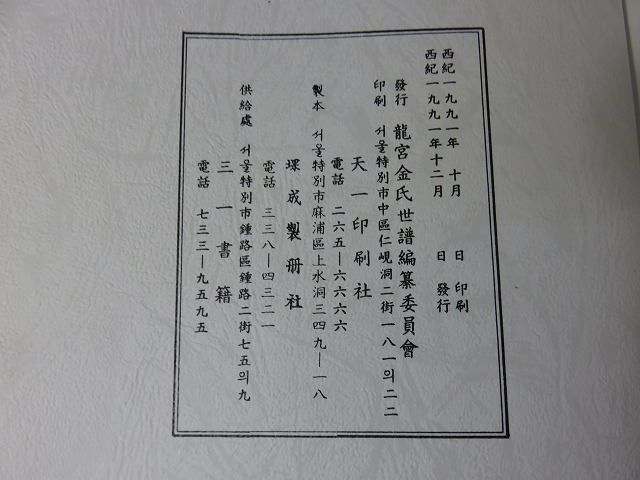 西紀一九九一年 十月 日 印刷
西紀一九九一年十二月 日 發行
發行 龍宮金氏世譜編纂委員會
印刷 서울特別市中區仁峴洞二街一八一의二二
天一印刷社
電話 二六五—六六六六
製本 서울特別市麻浦區上水洞三四九—一八
成製册社
電話 三三八—四三二一
供給處 서울特別市鍾路區鍾路二街七五의九
三一書籍
電話 七三三—九五九五